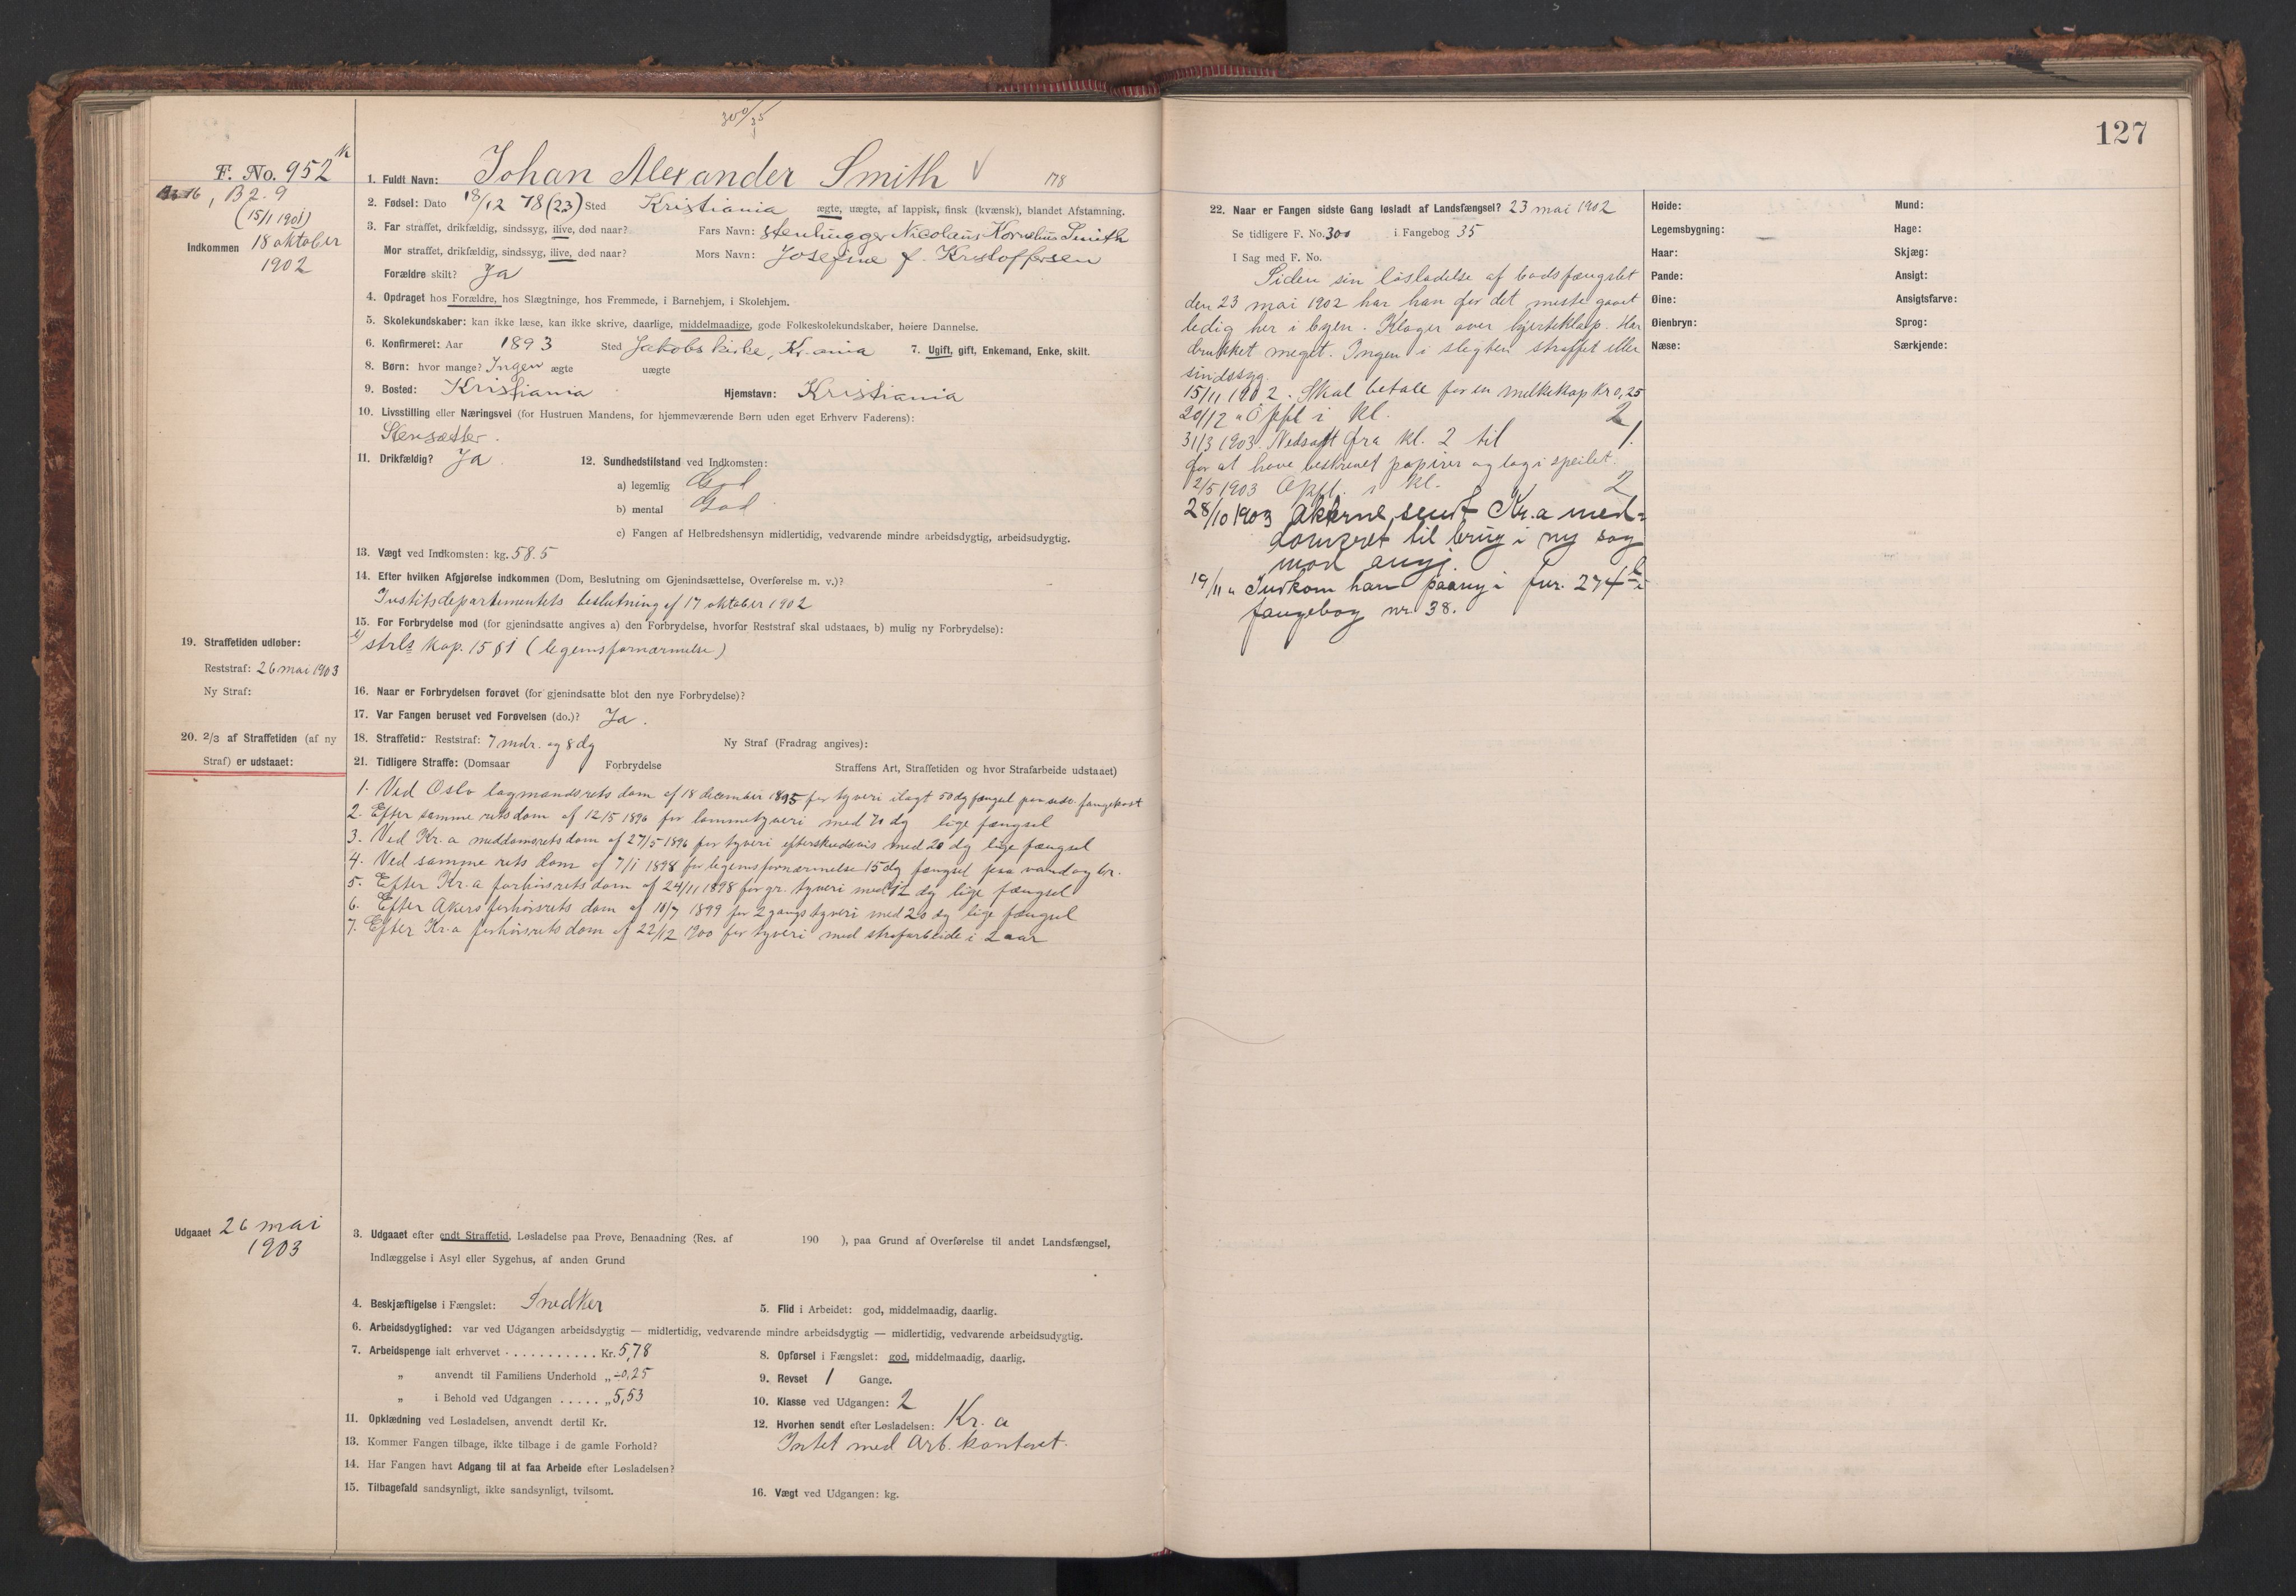 127
300/35
F. No. 952 k
16, B2.9
(15/1 1901)
Indkommen 18 oktober
1902
1. Fuldt Navn: Johan Alexander Smith V 178
2. Fødsel: Dato 18/12 78 (23) Sted Kristiania ægte, uægte, af lappisk, finsk (kvænsk), blandet Afstamning.
3. Far straffet, drikfældig, sindssyg, ilive, død naar? Fars Navn: Stenhugger Nicolaus Kornelius Smith
Mor straffet, drikfældig, sindssyg, ilive, død naar? Mors Navn: Josefine f. Kristoffersen
Forældre skilt? Ja
4. Opdraget hos Forældre, hos Slægtninge, hos Fremmede, i Barnehjem, i Skolehjem.
5. Skolekundskaber: kan ikke læse, kan ikke skrive, daarlige, middelmaadige, gode Folkeskolekundskaber, høiere Dannelse.
6. Konfirmeret: Aar 1893 Sted Jakobs kirke, Kr.ania 7. Ugift, gift, Enkemand, Enke, skilt.
8. Børn: hvor mange? Ingen ægte uægte
9. Bosted: Kristiania Hjemstavn: Kristiania
10. Livsstilling eller Næringsvei (for Hustruen Mandens, for hjemmeværende Børn uden eget Erhverv Faderens):
Stensætter.
11. Drikfældig? Ja. 12. Sundhedstilstand ved Indkomsten:
a) legemlig God
b) mental God
c) Fangen af Helbredshensyn midlertidig, vedvarende mindre arbeidsdygtig, arbeidsudygtig.
13. Vægt ved Indkomsten: kg. 58.5
14. Efter hvilken Afgjørelse indkommen (Dom, Beslutning om Gjenindsættelse, Overførelse m. v.)?
Justitsdepartementets beslutning af 17 oktober 1902
15. For Forbrydelse mod (for gjenindsatte angives a) den Forbrydelse, hvorfor Reststraf skal udstaaes, b) mulig ny Forbrydelse):
strls kap. 15 § 1 (legemsfornærmelse)
19. Straffetiden udløber:
Reststraf: 26 mai 1903
Ny Straf:
16. Naar er Forbrydelsen forøvet (for gjenindsatte blot den nye Forbrydelse)?
17. Var Fangen beruset ved Forøvelsen (do.)? Ja.
20. 2/3 af Straffetiden (af ny
Straf) er udstaaet:
18. Straffetid: Reststraf: 7 mdr. og 8 dg Ny Straf (Fradrag angives):
21. Tidligere Straffe: (Domsaar Forbrydelse Straffens Art, Straffetiden og hvor Strafarbeide udstaaet)
1. Ved Oslo lagmandsrets dom af 18 december 1895 for tyveri ilagt 50 dg fængsel paa sedv. fangekost
2. Efter samme rets dom af 12/5 1896 for lommetyveri med 70 dg lige fængsel
3. Ved Kr.a meddomsrets dom af 27/5 1896 for tyveri efterskudsvis med 20 dg lige fængsel
4. Ved samme rets dom af 7/1 1898 for legemsfornærmelse 15 dg fængsel paa vand og br.
5. Efter Kr.a forhørsrets dom af 24/11 1898 for gr. tyveri med 12 dg lige fængsel
6. Efter Akers forhørsrets dom af 10/7 1899 for 2 gangs tyveri med 20 dg lige fængsel
7. Efter Kr.a forhørsrets dom af 22/12 1900 for tyveri med strafarbeide i 2 aar
Udgaaet 26 mai
1903
3. Udgaaet efter endt Straffetid, Løsladelse paa Prøve, Benaadning (Res. af 190 ), paa Grund af Overførelse til andet Landsfængsel,
Indlæggelse i Asyl eller Sygehus, af anden Grund
4. Beskjæftigelse i Fængslet: Snedker 5. Flid i Arbeidet: god, middelmaadig, daarlig.
6. Arbeidsdygtighed: var ved Udgangen arbeidsdygtig — midlertidig, vedvarende mindre arbeidsdygtig — midlertidig, vedvarende arbeidsudygtig.
7. Arbeidspenge ialt erhvervet . . . . . . . . . . . Kr. 5,78 8. Opførsel i Fængslet: god, middelmaadig, daarlig.
„ anvendt til Familiens Underhold „ ÷0,25 9. Revset 1 Gange.
„ i Behold ved Udgangen . . . . . „ 5,53 10. Klasse ved Udgangen: 2
11. Opklædning ved Løsladelsen, anvendt dertil Kr. 12. Hvorhen sendt efter Løsladelsen: Kr. a
13. Kommer Fangen tilbage, ikke tilbage i de gamle Forhold? Intet med arb. kontoret.
14. Har Fangen havt Adgang til at faa Arbeide efter Løsladelsen?
15. Tilbagefald sandsynligt, ikke sandsynligt, tvilsomt. 16. Vægt ved Udgangen: kg.
22. Naar er Fangen sidste Gang løsladt af Landsfængsel? 23 mai 1902
Se tidligere F. No. 300 i Fangebog 35
I Sag med F. No.
Siden sin løsladelse af bodsfængslet
den 23 mai 1902 har han for det meste gaaet
ledig her i byen. Klager over hjerteklap. Har
drukket meget. Ingen i slegten straffet eller
sindssyg.
15/11 1902. Skal betale for en melkekop Kr 0,25
20/12 " Opfl i kl. 2
31/3 1903. Nedsatt fra kl. 2 til 1.
for at have beskrevet papirer og lag i speilet.
2/5 1903 Opfl. i kl. 2
28/10 1903 Akterne sendt Kr.a med-
domsret til brug i ny sag
mod angj.
19/11 " Indkom han paany i fnr. 274 b i
fangebog nr. 38.
Høide: Mund:
Legemsbygning: Hage:
Haar: Skjæg:
Pande: Ansigt:
Øine: Ansigtsfarve:
Øienbryn: Sprog:
Næse: Særkjende: